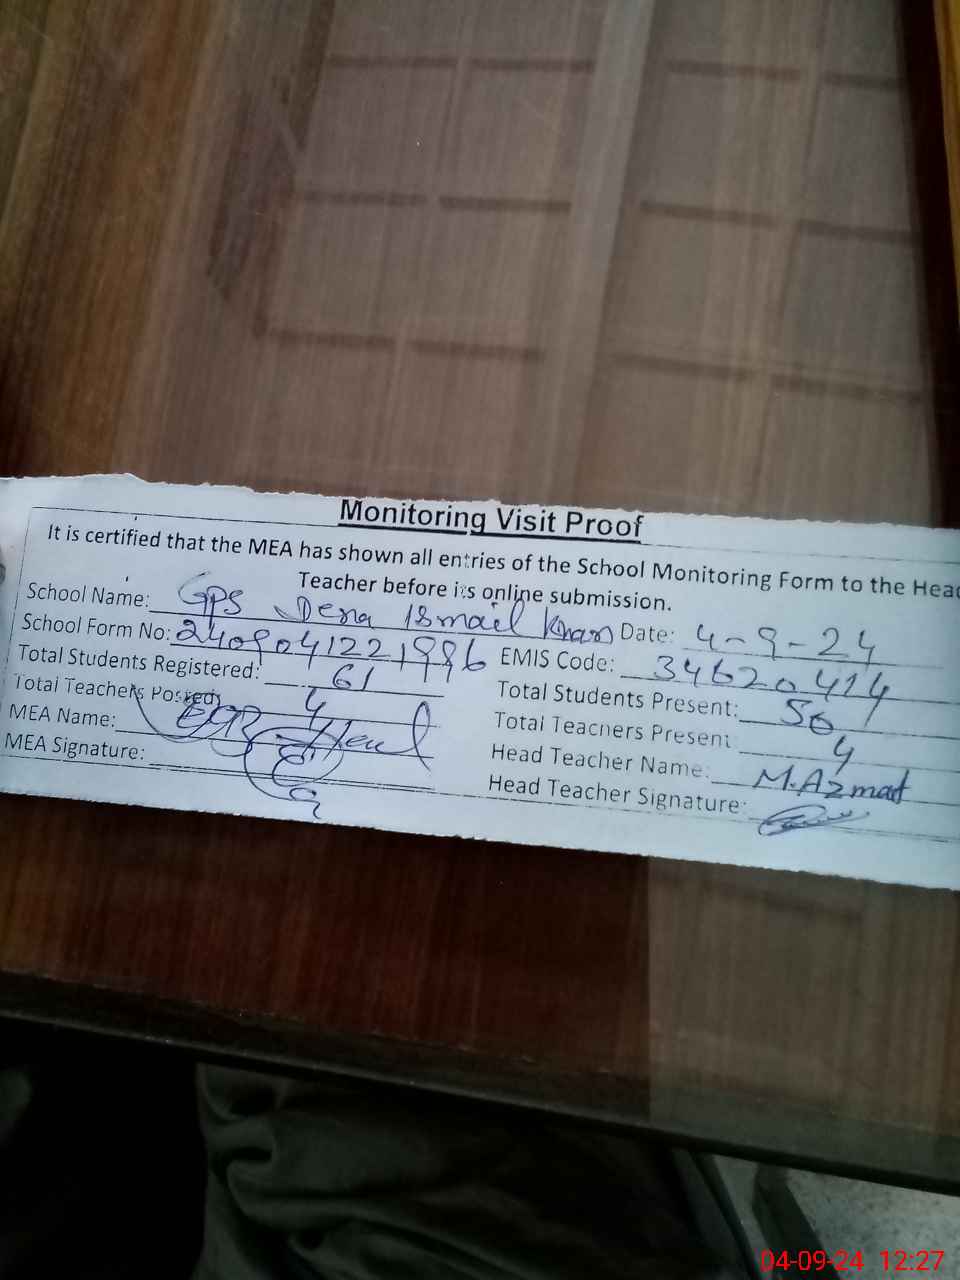 Monitoring Visit Proof
It is certified that the MEA has shown all entries of the School Monitoring Form to the Head
Teacher before its online submission.
School Name: GPS Dera Ismail Khan Date: 4-9-24
School Form No: 2409041221996 EMIS Code: 34620414
Total Students Registered: 61 Total Students Present: 50
Total Teachers Posted: 4 Total Teachers Present 4
MEA Name: Head Teacher Name: M.Azmat
MEA Signature: Head Teacher Signature:
04-09-24 12:27